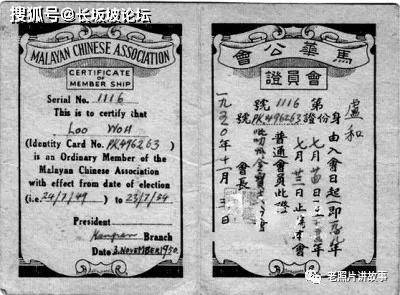 搜狐号@长坂坡论坛
MALAYAN CHINESE ASSOCIATION
CERTIFICATE
OF
MEMBER SHIP
Serial No. 1116
This is to certify that
Loo WoH
(Identity Card No. PK496263)
is an Ordinary Member of the
Malayan Chinese Association
with effect from date of election
(i.e. 24/7/49) to 23/7/54
President
Kampar Branch
Date 3. NOVEMBER 1950
馬華公會
會員證
盧和
第1116號
身份證PK496263號
由入會日起(即
七月廿四日
七月廿三日止為本會
普通會員此證
會長
一九五〇年十一月三日
老照片讲故事